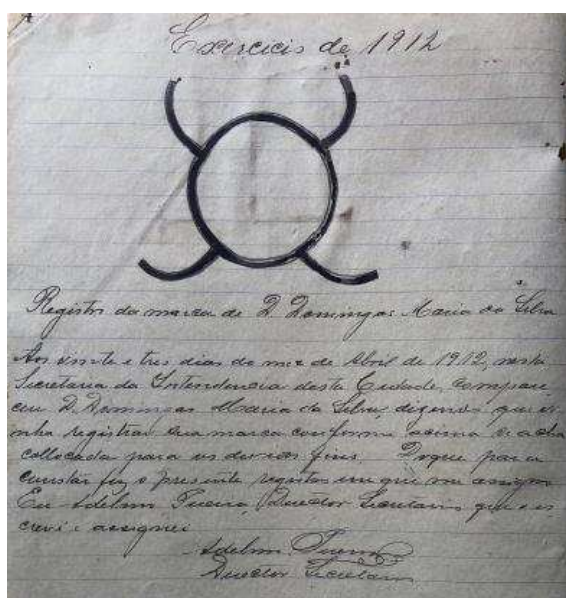 Exercicio de 1912
Registro da marca de D. Domingas Maria da Silva
Aos vinte e tres dias do mez de Abril de 1912, nesta
Secretaria da Intendencia desta Cidade, compare
ceu D. Domingas Maria da Silva, dizendo que vi
nha registrar sua marca conforme acima se acha
collocada para os devidos fins. Do que para
constar fiz o presente registro em que me assigno
Eu Adelmo Director Secretario que o es
crevi e assignei
Adelmo
Director Secretario